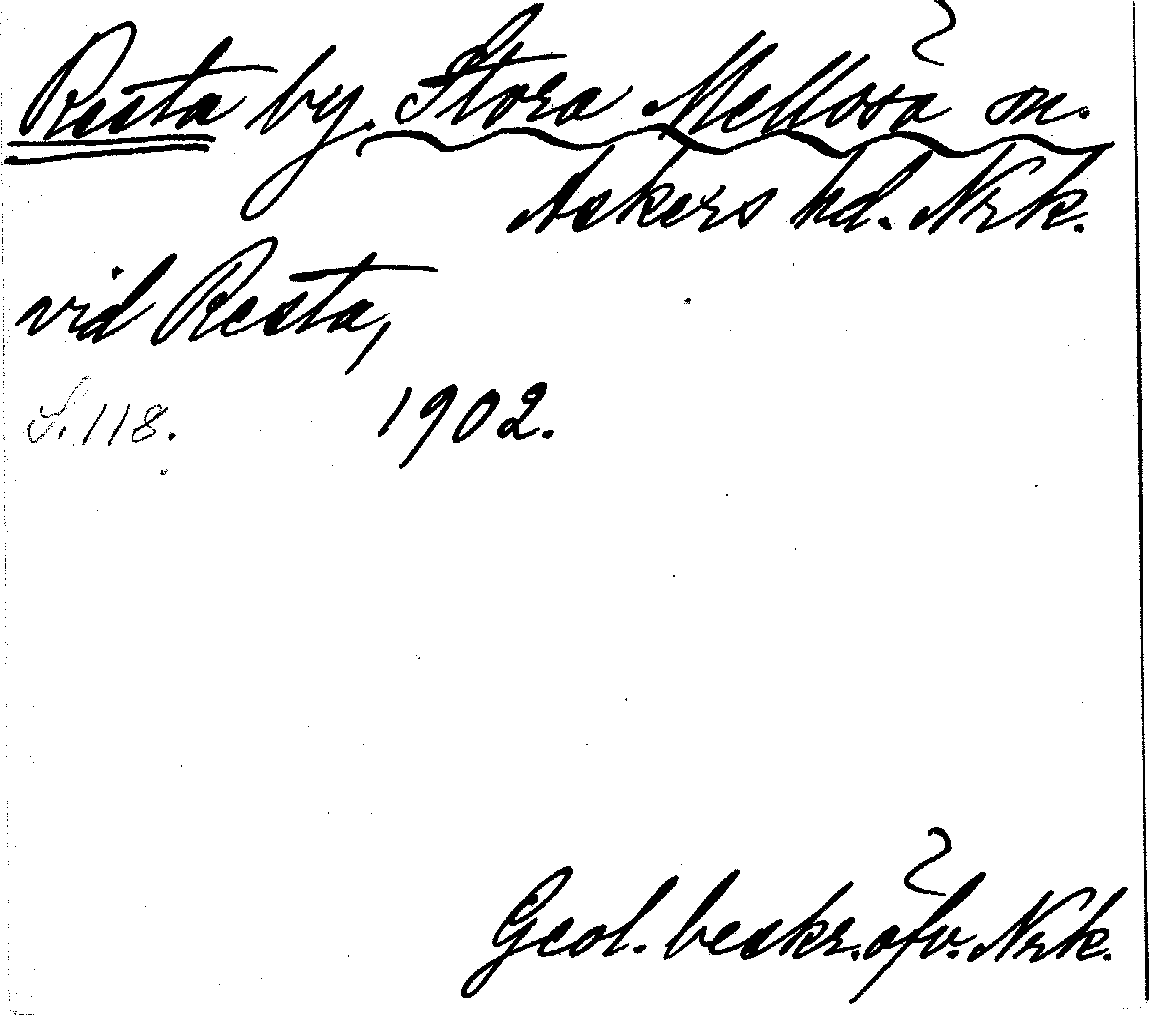 Resta by. Stora Mellösa sn.
Askers hd. Nrk.
vid Resta,
S. 118. 1902.
Geol. beskr. öfv. Nrk.